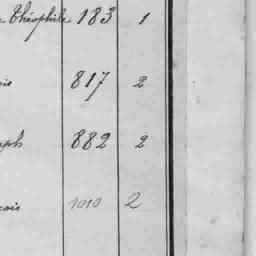 Théophile 183 1
817 2
ph 882 2
cois 1010 2